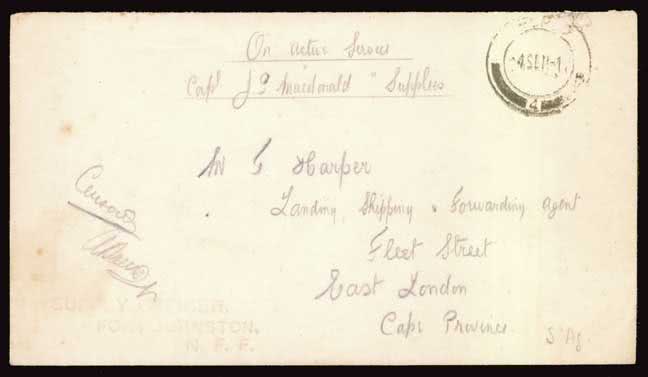 On Active Service
Capt J G Macdonald "Supplies
4 SE 11-1
4
W G Harper
Landing, Shipping & Forwarding Agent
Fleet Street
East London
Cape Province
S' Af.
Censored
SUPPLY OFFICER,
FORT JOHNSTON,
N. F. F.